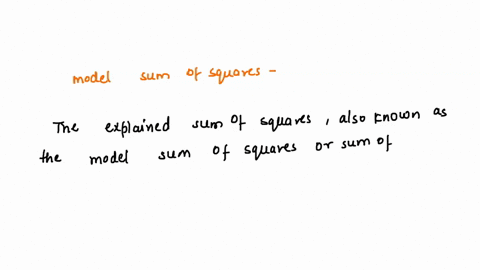 model sum of squares -
The explained sum of squares, also known as
the model sum of squares or sum of